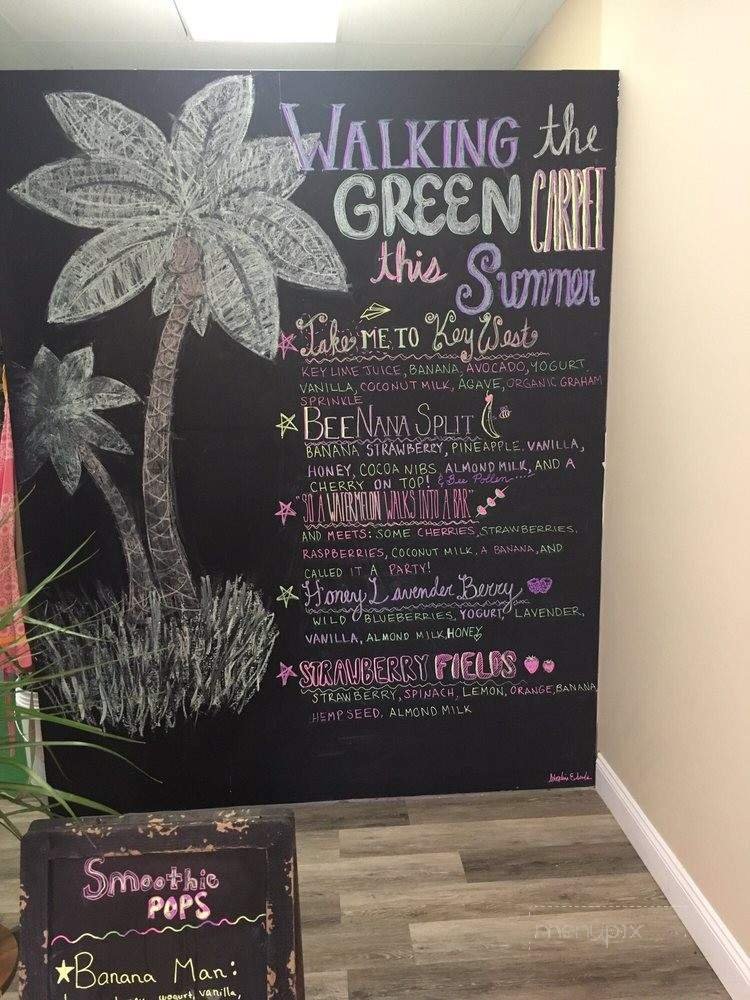 WALKING the
GREEN CARPET
this Summer
Take ME TO Key West
KEY LIME JUICE, BANANA, AVOCADO, YOGURT,
VANILLA, COCONUT MILK, AGAVE, ORGANIC GRAHAM
SPRINKLE
BEENANA SPLIT
BANANA STRAWBERRY, PINEAPPLE, VANILLA,
HONEY, COCOA NIBS, ALMOND MILK, AND A
CHERRY ON TOP! & Bee Pollen
"SO A WATERMELON WALKS INTO A BAR"
AND MEETS: SOME CHERRIES, STRAWBERRIES,
RASPBERRIES, COCONUT MILK, A BANANA, AND
CALLED IT A PARTY!
Honey Lavender Berry
WILD BLUEBERRIES, YOGURT, LAVENDER,
VANILLA, ALMOND MILK, HONEY
STRAWBERRY FIELDS
STRAWBERRY, SPINACH, LEMON, ORANGE, BANANA,
HEMPSEED, ALMOND MILK
Smoothie
POPS
Banana Man:
yogurt, vanilla,
menupix